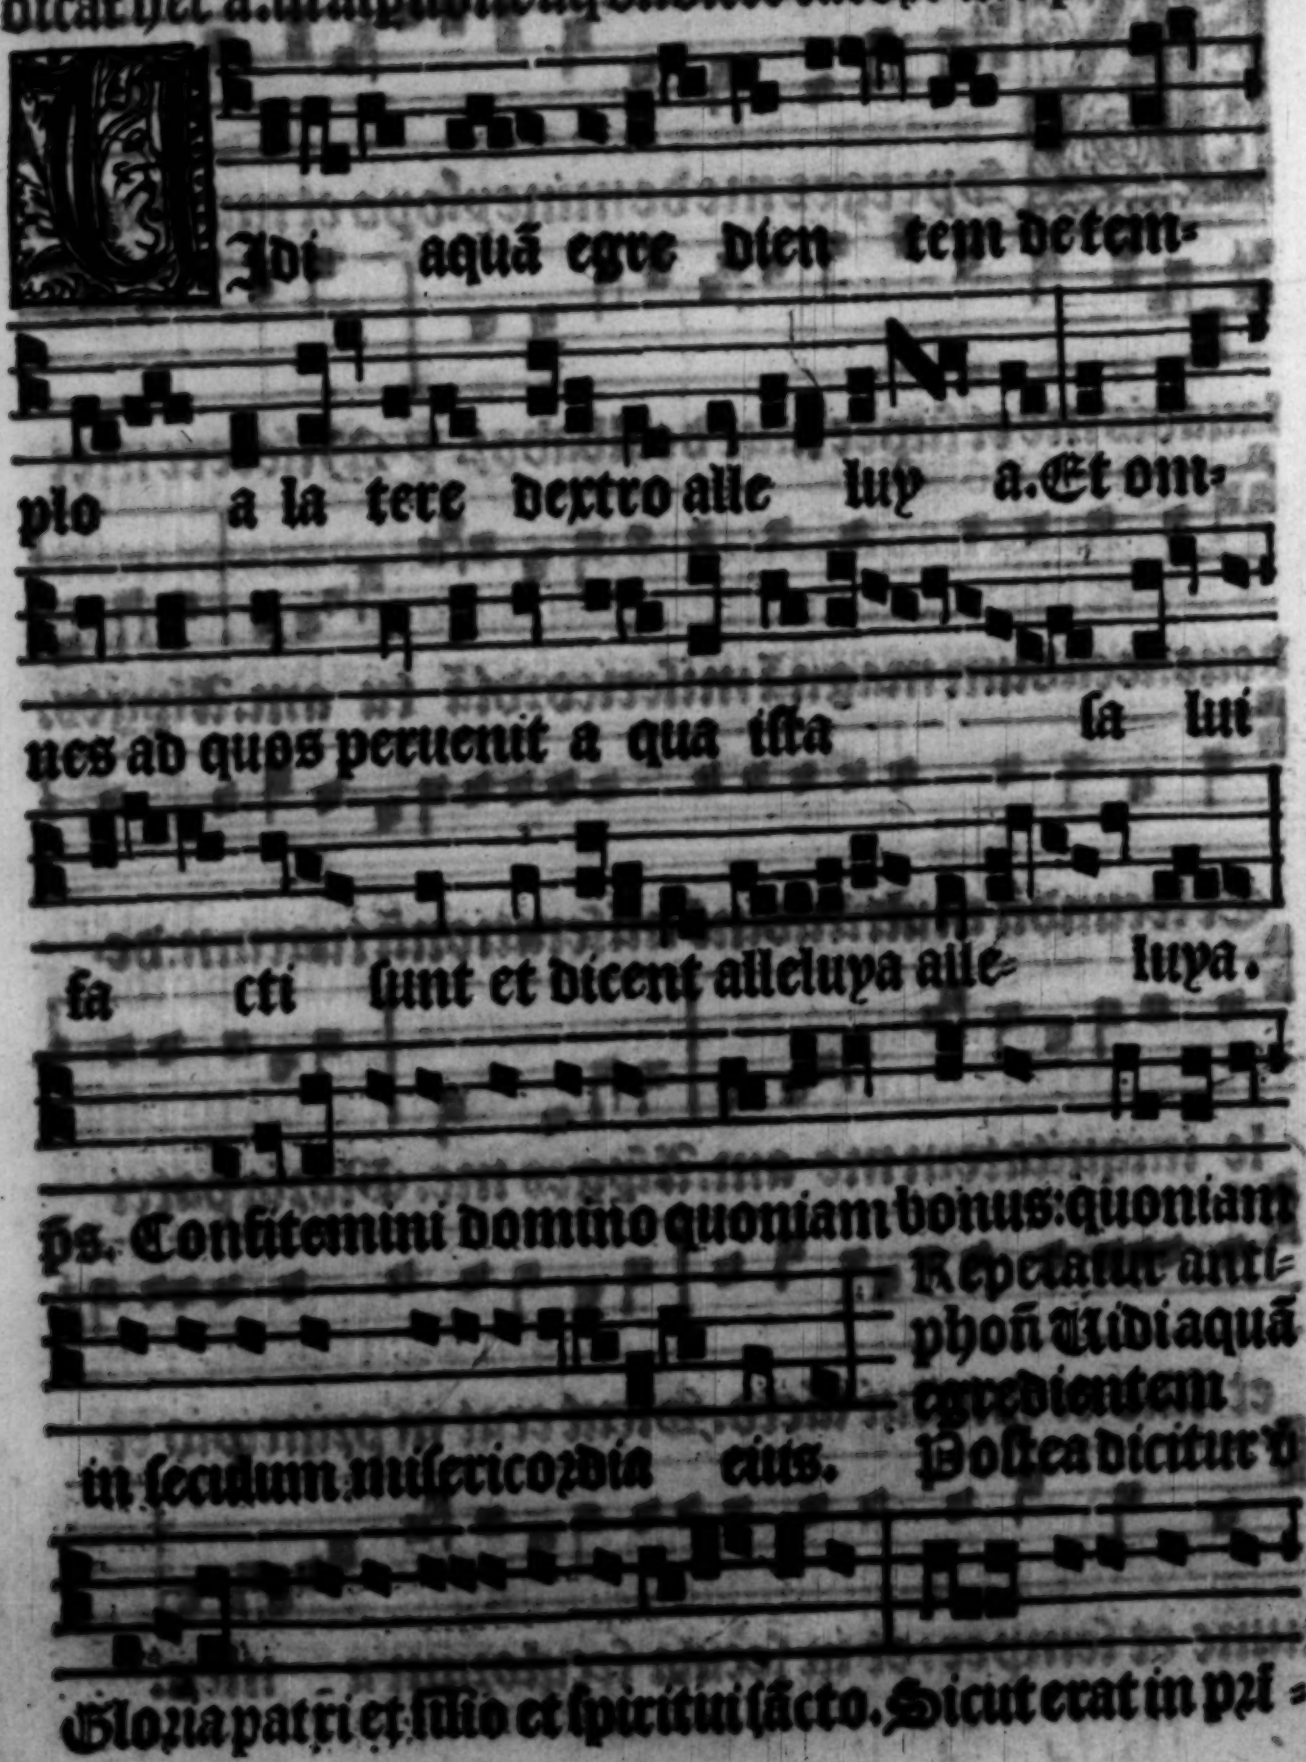 UIdi aquã egre dien tem de tem-
plo a la tere dextro alle luy a. Et om-
nes ad quos peruenit a qua ista sa lui
fa cti sunt et dicent alleluya alle- luya.
p̃s. Confitemini domino quoniam bonus: quoniam
Repetatur anti-
phoñ Uidi aquã
egredientem
in seculum misericordia eius. Postea dicitur
Gloria patri et filio et spiritui sãcto. Sicut erat in pri-